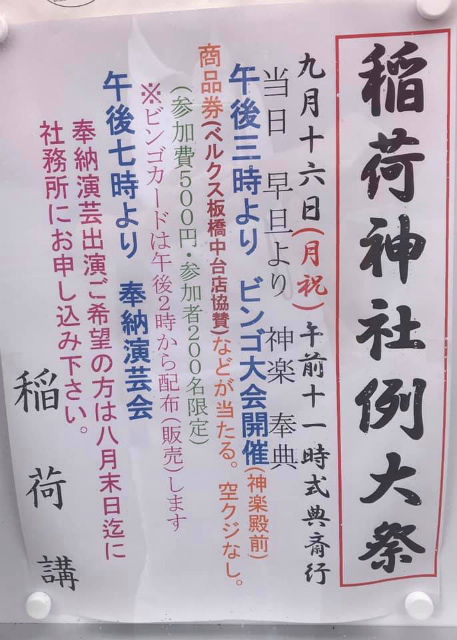 稲荷神社例大祭
九月十六日(月祝)午前十一時式典斎行
当日 早旦より 神楽 奉典
午後三時より ビンゴ大会開催(神楽殿前)
商品券(ベルクス板橋中台店協賛)などが当たる。空クジなし。
(参加費500円・参加者200名限定)
※ビンゴカードは午後2時から配布(販売)します
午後七時より 奉納演芸会
奉納演芸出演ご希望の方は八月末日迄に
社務所にお申し込み下さい。
稲荷講